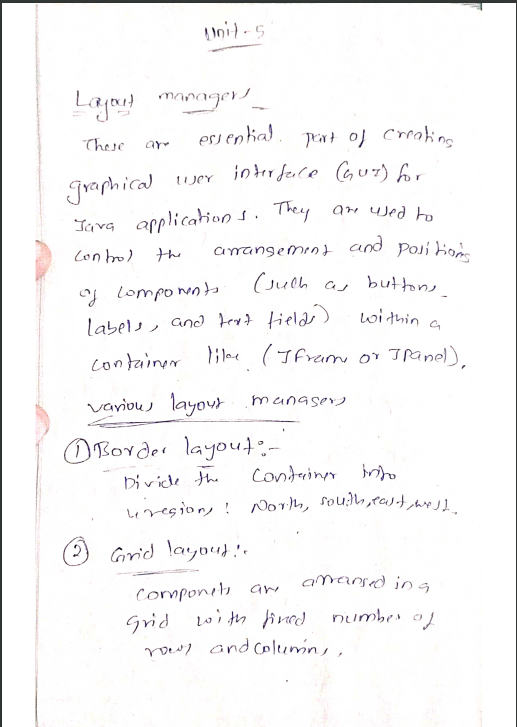 Unit-5
Layout managers
These are essential part of creating
graphical user interface (GUI) for
Java applications. They are used to
control the arrangement and positions
of components (such as buttons
labels, and text fields) within a
container like (JFrame or JPanel).
various layout managers
① Border layout:-
Divide the container into
4 regions: North, south, east, west.
② Grid layout:-
componets are arranged in a
grid with fined number of
rows and columns,